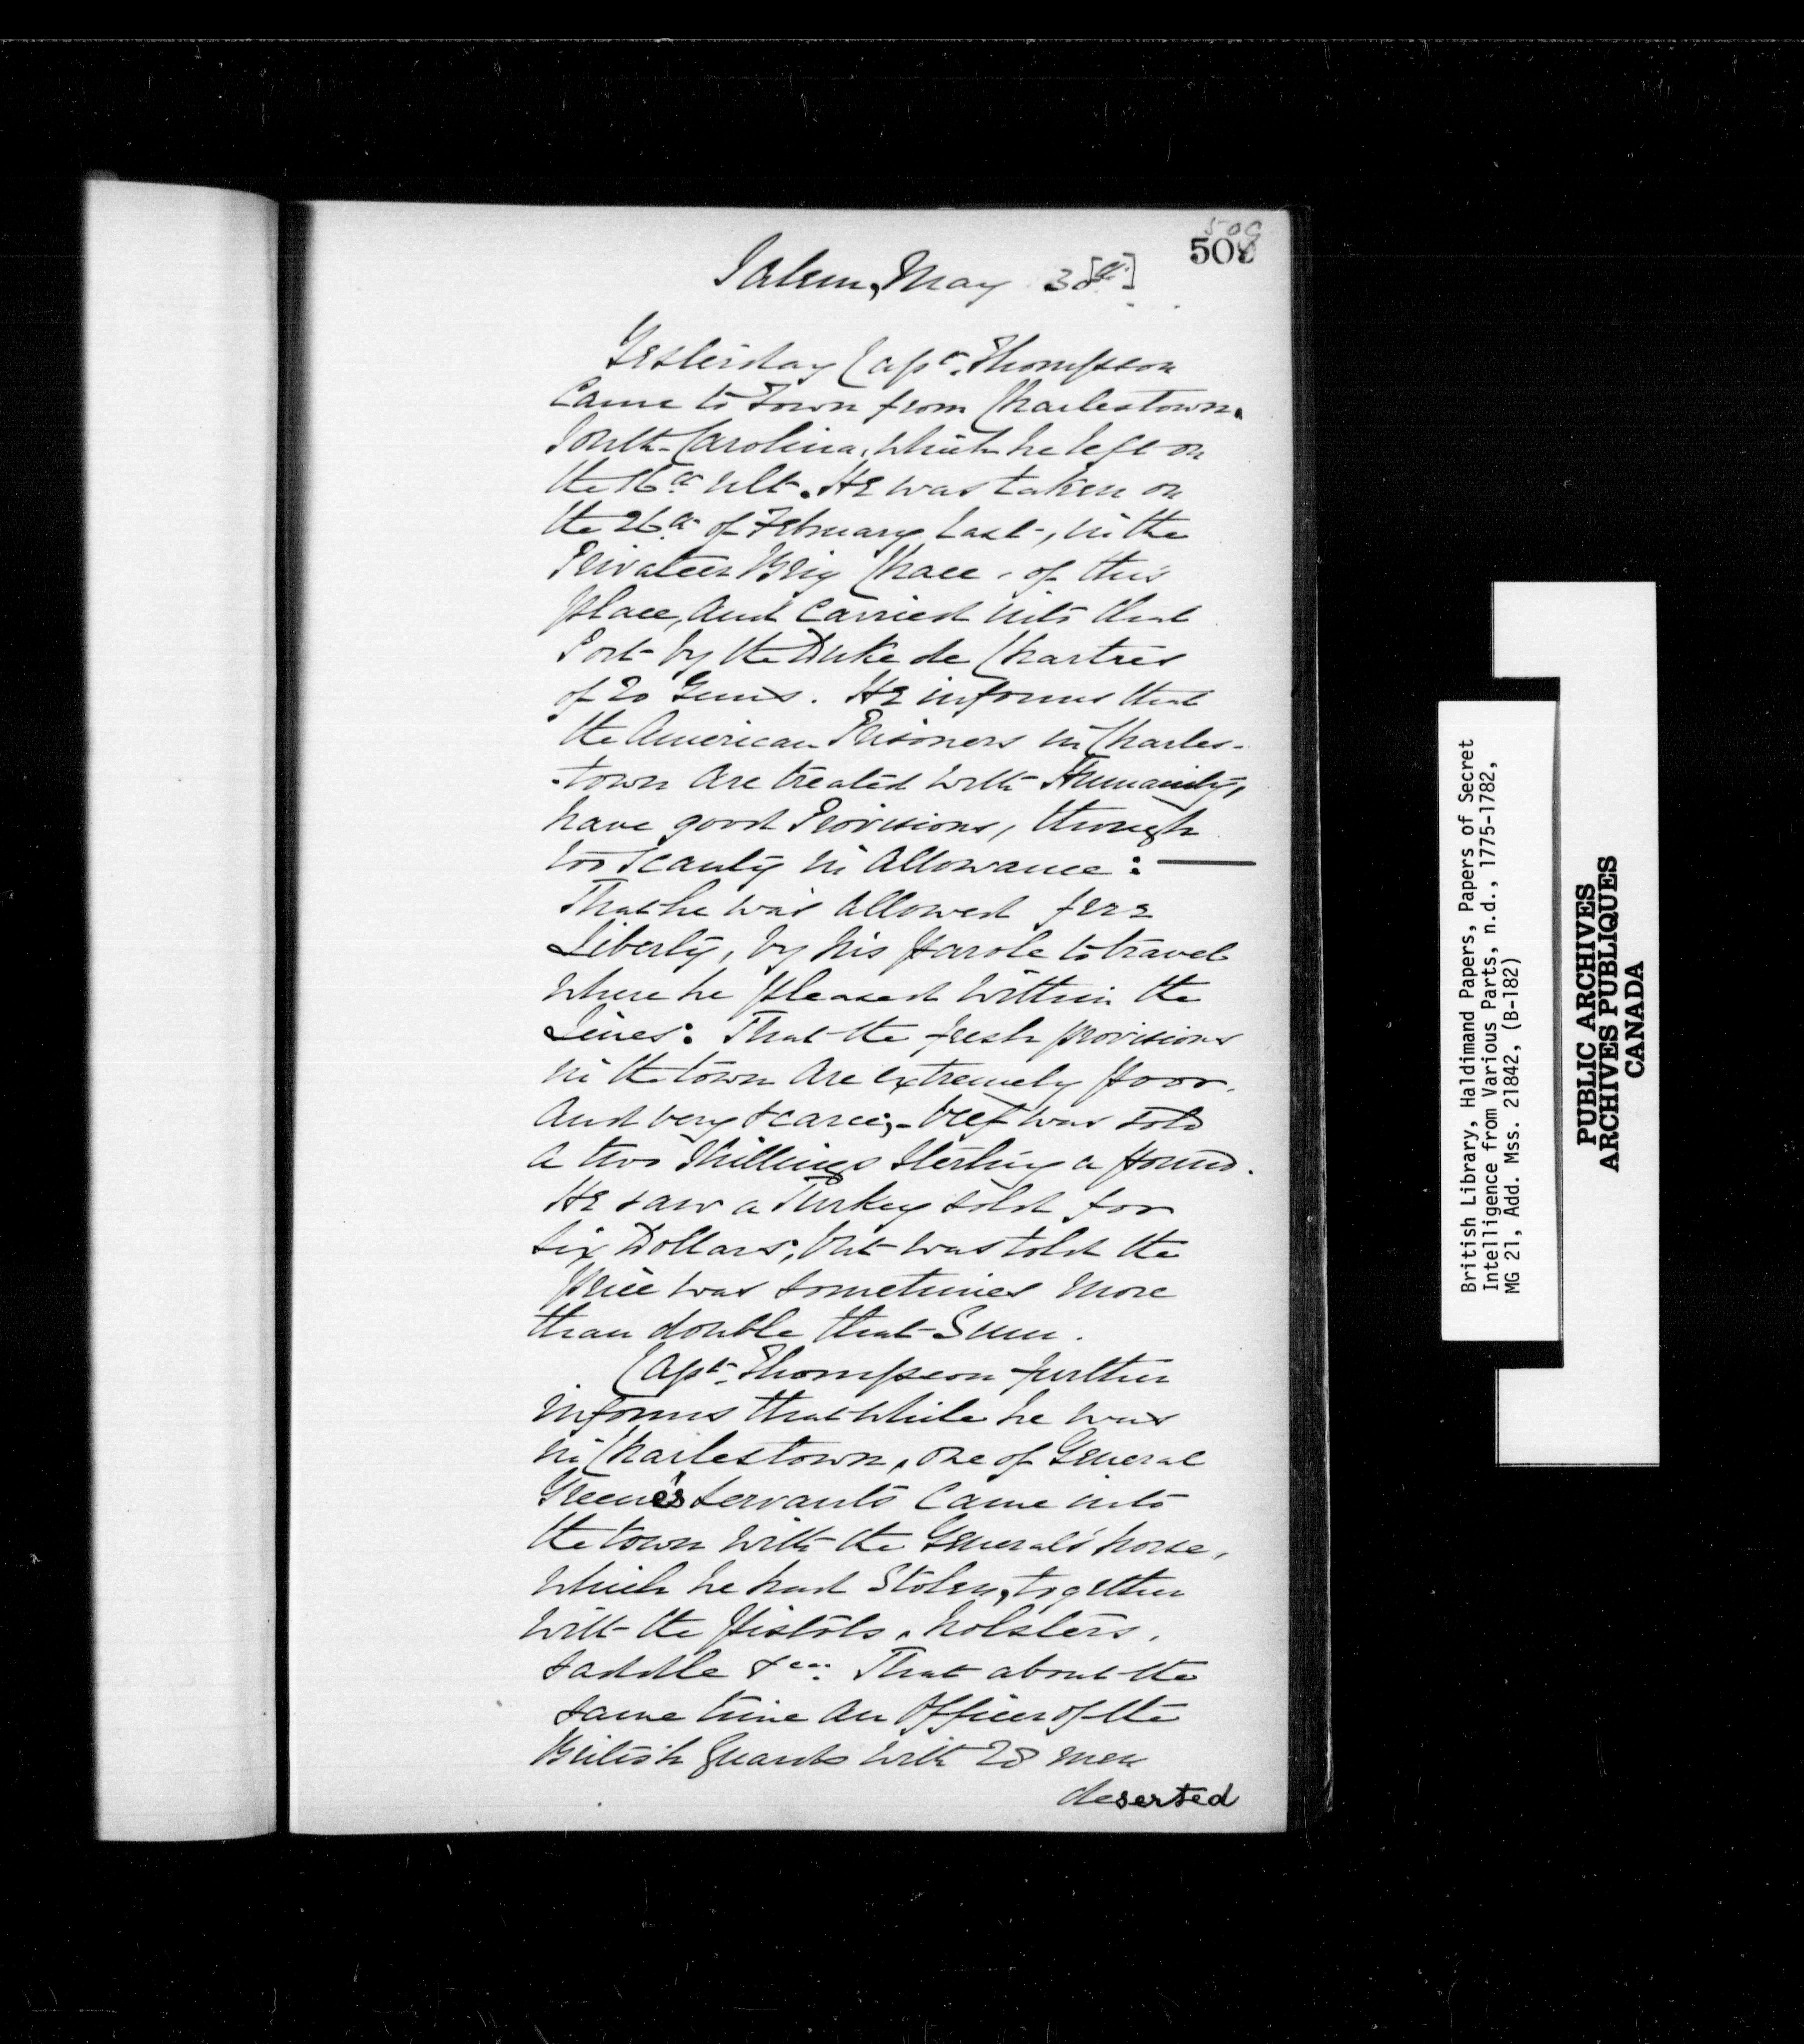 509
509
Salem, May 30[th]
Yesterday Capt. Thompson
came to Town from Charlestown.
South-Carolina, which he left on
the 16th ult. He was taken on
the 26th of February last, in the
Privateer Brig Chace, of this
place, and carried into that
Port by the Duke de Chartres
of 20 Guns. He informs that
the American Prisoners in Charles-
-town are treated with Humanity,
have good Provisions, though
too scanty in allowance: —
That he was allowed free
Liberty, by his parole to travel
where he pleased within the
Lines: That the fresh provisions
in the town are extremely poor,
and very scarce; - beef was sold
a two Shillings Sterling a pound.
He saw a Turkey sold for
six Dollars; but was told the
price was sometimes more
than double that Sum.
Capt. Thompson further
informs that while he was
in Charlestown, one of General
Greene's servants came into
the town with the General's horse,
which he had stolen, together
with the pistols, holsters,
saddle &c. That about the
same time an Officer of the
British Guards with 28 men
deserted
British Library, Haldimand Papers, Papers of Secret
Intelligence from Various Parts, n.d., 1775-1782,
MG 21, Add. Mss. 21842, (B-182)
PUBLIC ARCHIVES
ARCHIVES PUBLIQUES
CANADA